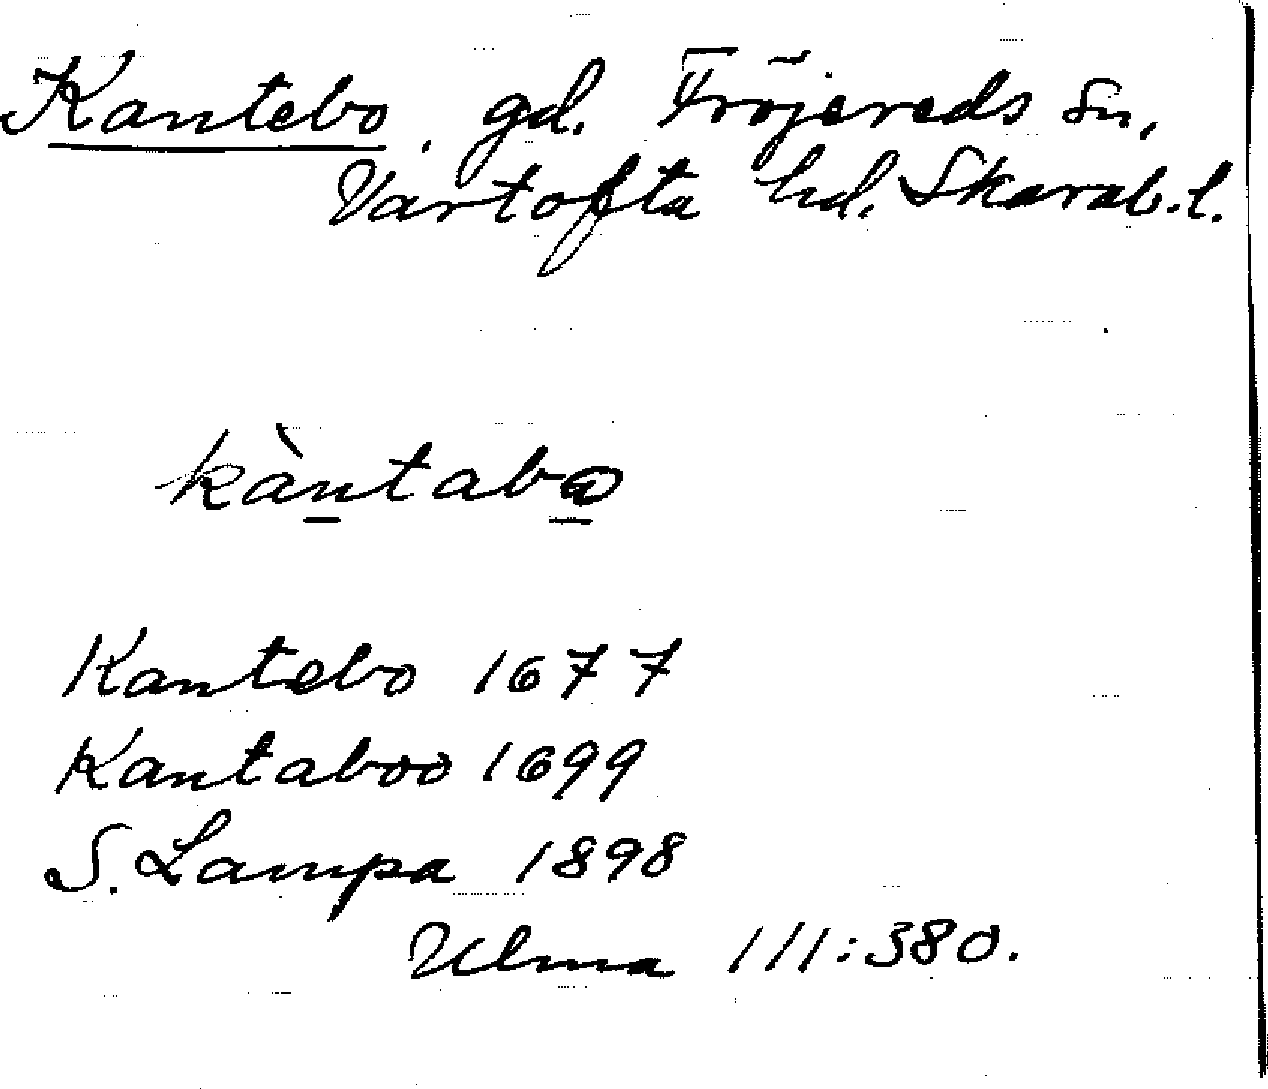 Kantebo. gd. Fröjereds sn,
Vartofta hd. Skarab.l.
kàntabo
Kantebo 1677
Kantaboo 1699
S. Lampa 1898
Ulma 111:380.